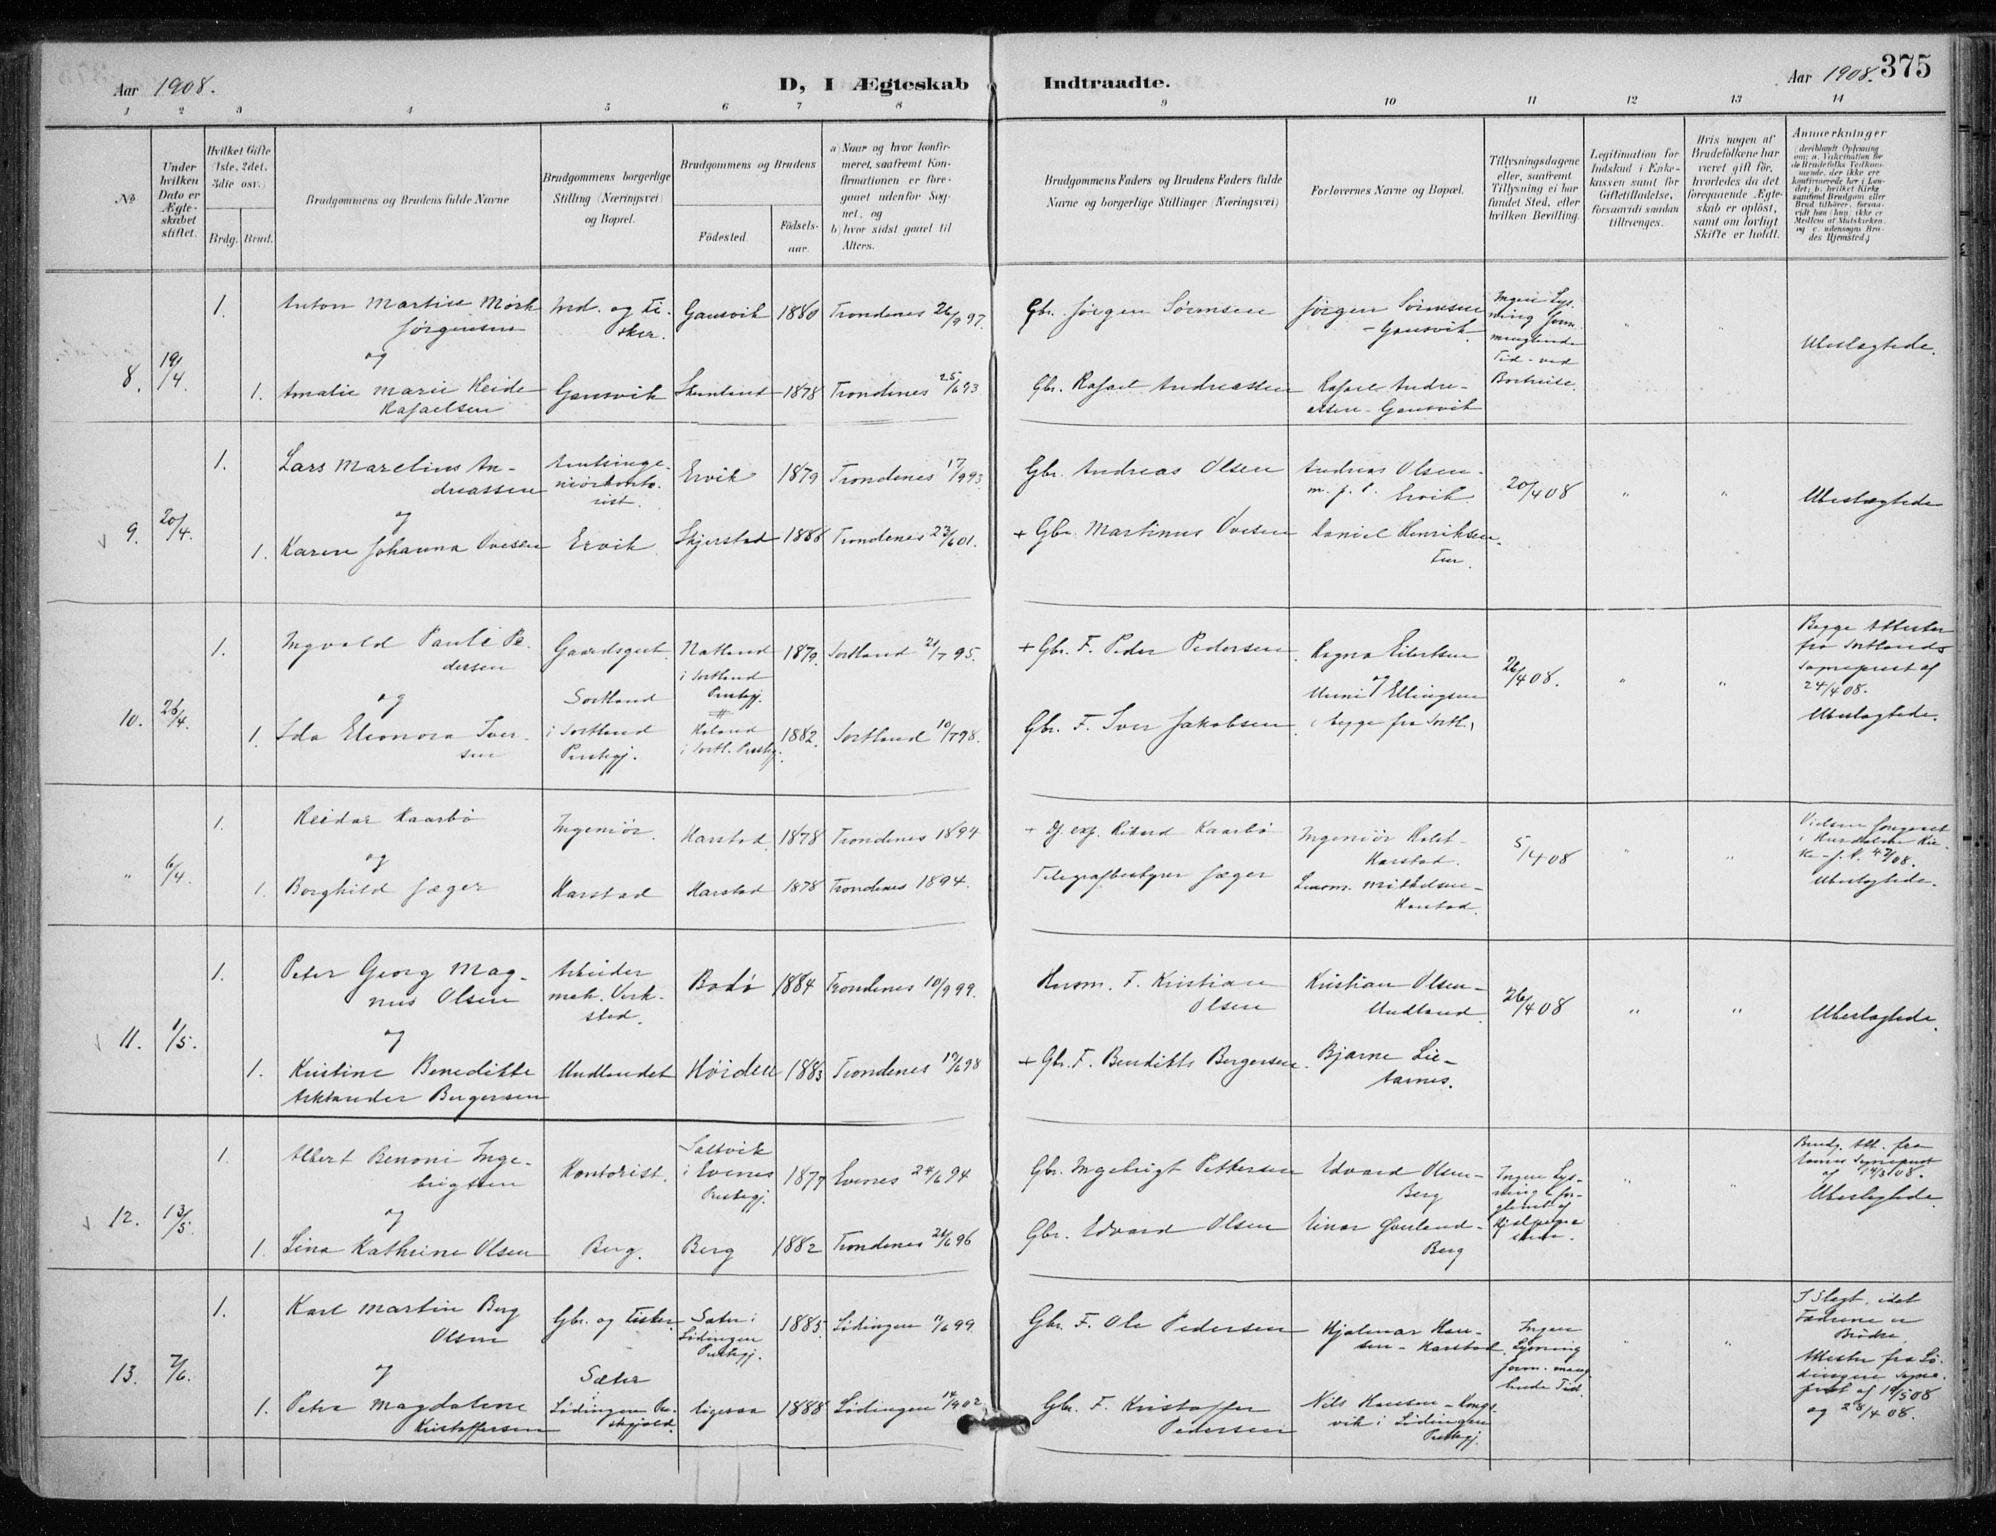 Aar 1908.
D, I Ægteskab Indtraadte.
Aar 1908. 375
1 2 3 4 5 6 7 8 9 10 11 12 13 14
No
Under hvilken Dato er Ægteskabet stiftet.
Hvilket Gifte (1ste, 2det, 3die osv.)
Brdg. Brud.
Brudgommens og Brudens fulde Navne
Brudgommens borgerlige Stilling (Næringsvei) og Bopæl.
Brudgommens og Brudens
Födested. Födsels-aar.
a) Naar og hvor konfirmeret, saafremt Konfirmationen er foregaaet udenfor Sognet, og
b) hvor sidst gaaet til Alters.
Brudgommens Faders og Brudens Faders fulde Navne og borgerlige Stillinger (Næringsvei)
Forlovernes Navne og Bopæl.
Tillysningsdagene eller, saafremt Tillysning ei har fundet Sted, efter hvilken Bevilling.
Legitimation for Indskud i Enkekassen samt for Giftetilladelse, forsaavidt saadan tiltrænges.
Hvis nogen af Brudefolkene har været gift för, hvorledes da det foregaaende Ægteskab er oplöst, samt om lovligt Skifte er holdt.
Anmerkninger
8. 19/4. 1. Anton Martin Mørk Jørgensen
Ind. og Fisker. Gansvik 1880 Trondenes 26/9 97.
Gbr. Jørgen Sørensen
Jørgen Sørensen - Gansvik.
Ubeslægtede.
og
1. Amalie Marie Heide Rafaelsen
Gansvik 1878 Trondenes 25/6 93
Gbr. Rafael Andreassen
Rafael Andreassen - Gansvik
9. 20/4. 1. Lars Marelius Andreassen
Amtsingeniørkontorist. Ervik 1879 Trondenes 17/9 93
Gbr. Andreas Olsen
Andreas Olsen m. f. l. Ervik.
20/4 08 " " Ubeslægtede
og
1. Karen Johanna Ovesen
Ervik Skjerstad 1886 Trondenes 23/6 01.
+ Gbr. Martinus Ovesen
Daniel Henriksen
10. 26/4. 1. Ingvald Pauli Pedersen
Gaardsgut. Natland i Sortland Prestegj. 1879. Sortland 21/7 95.
+ Gbr. F. Peder Pedersen
Ragna Eilertsen og Unni Ellingsen (begge fra Sortl.)
26/4 08. " "
Begge Attester fra Sortlands Sogneprest af 24/4 08.
Ubeslægtede.
og
1. Ida Eleonora Iversen
Sortland i Sortland Prestegj. Holand i Sortl. Prestegj. 1882. Sortland 10/7 98.
Gbr. F. Iver Jakobsen
" 6/4 1. Reidar Kaarbø
Ingeniør. Harstad 1878 Trondenes 1894
+ Dj. exp. Rikard Kaarbø
Ingeniør Holst - Harstad.
5/4 08 " "
Ubeslægtede.
og
1. Borghild Jæger
Harstad Harstad 1878 Trondenes 1894.
Telegrafbestyrer Jæger
Mikkelsen - Harstad.
11. 1/5. 1. Peter Georg Magnus Olsen
Arbeider mek. Verksted. Bodø 1884 Trondenes 10/9 99.
Husm. F. Kristian Olsen
Kristian Olsen - Undland.
26/4 08 " " Ubeslægtede.
og
1. Kristine Benedikte Arktander Bergersen
Undlandet Høiden 1883 Trondenes 19/6 98
+ Gbr. F. Bendikts Bergersen.
Bjarne Lie -
12. 13/5. 1. Albert Benoni Ingebrigtsen
Kontorist. Saltvik i Evenes Prestegj. 1877 Evenes 24/6 94
Gbr. Ingebrigt Pettersen
Edvard Olsen - Berg
" "
Ubeslægtede.
og
1. Lina Kathrine Olsen
Berg. Berg 1882 Trondenes 21/6 96
Gbr. Edvard Olsen
Einar Overland - Berg
13. 7/6. 1. Karl Martin Berg Olsen
Gbr. og Fisker. Sæter i Lødingen Prestegj. 1885 Lødingen 11/6 99.
Gbr. F. Ole Pedersen
Hjalmar Hansen - Harstad.
Ingen Lysning form. manglende Tid.
" "
I Slegt, idet Fædrene er Brødre.
Attester fra Lødingens Sogneprest af 14/5 08 og 28/4 08.
og
1. Petra Magdalene Kristoffersen
Sæter Lødingen Prestegjeld. ligesaa 1888 Lødingen 14/9 02
Gbr. F. Kristoffer Pedersen
Nils Hansen - Kongsvik i Lødingen Prestegj.